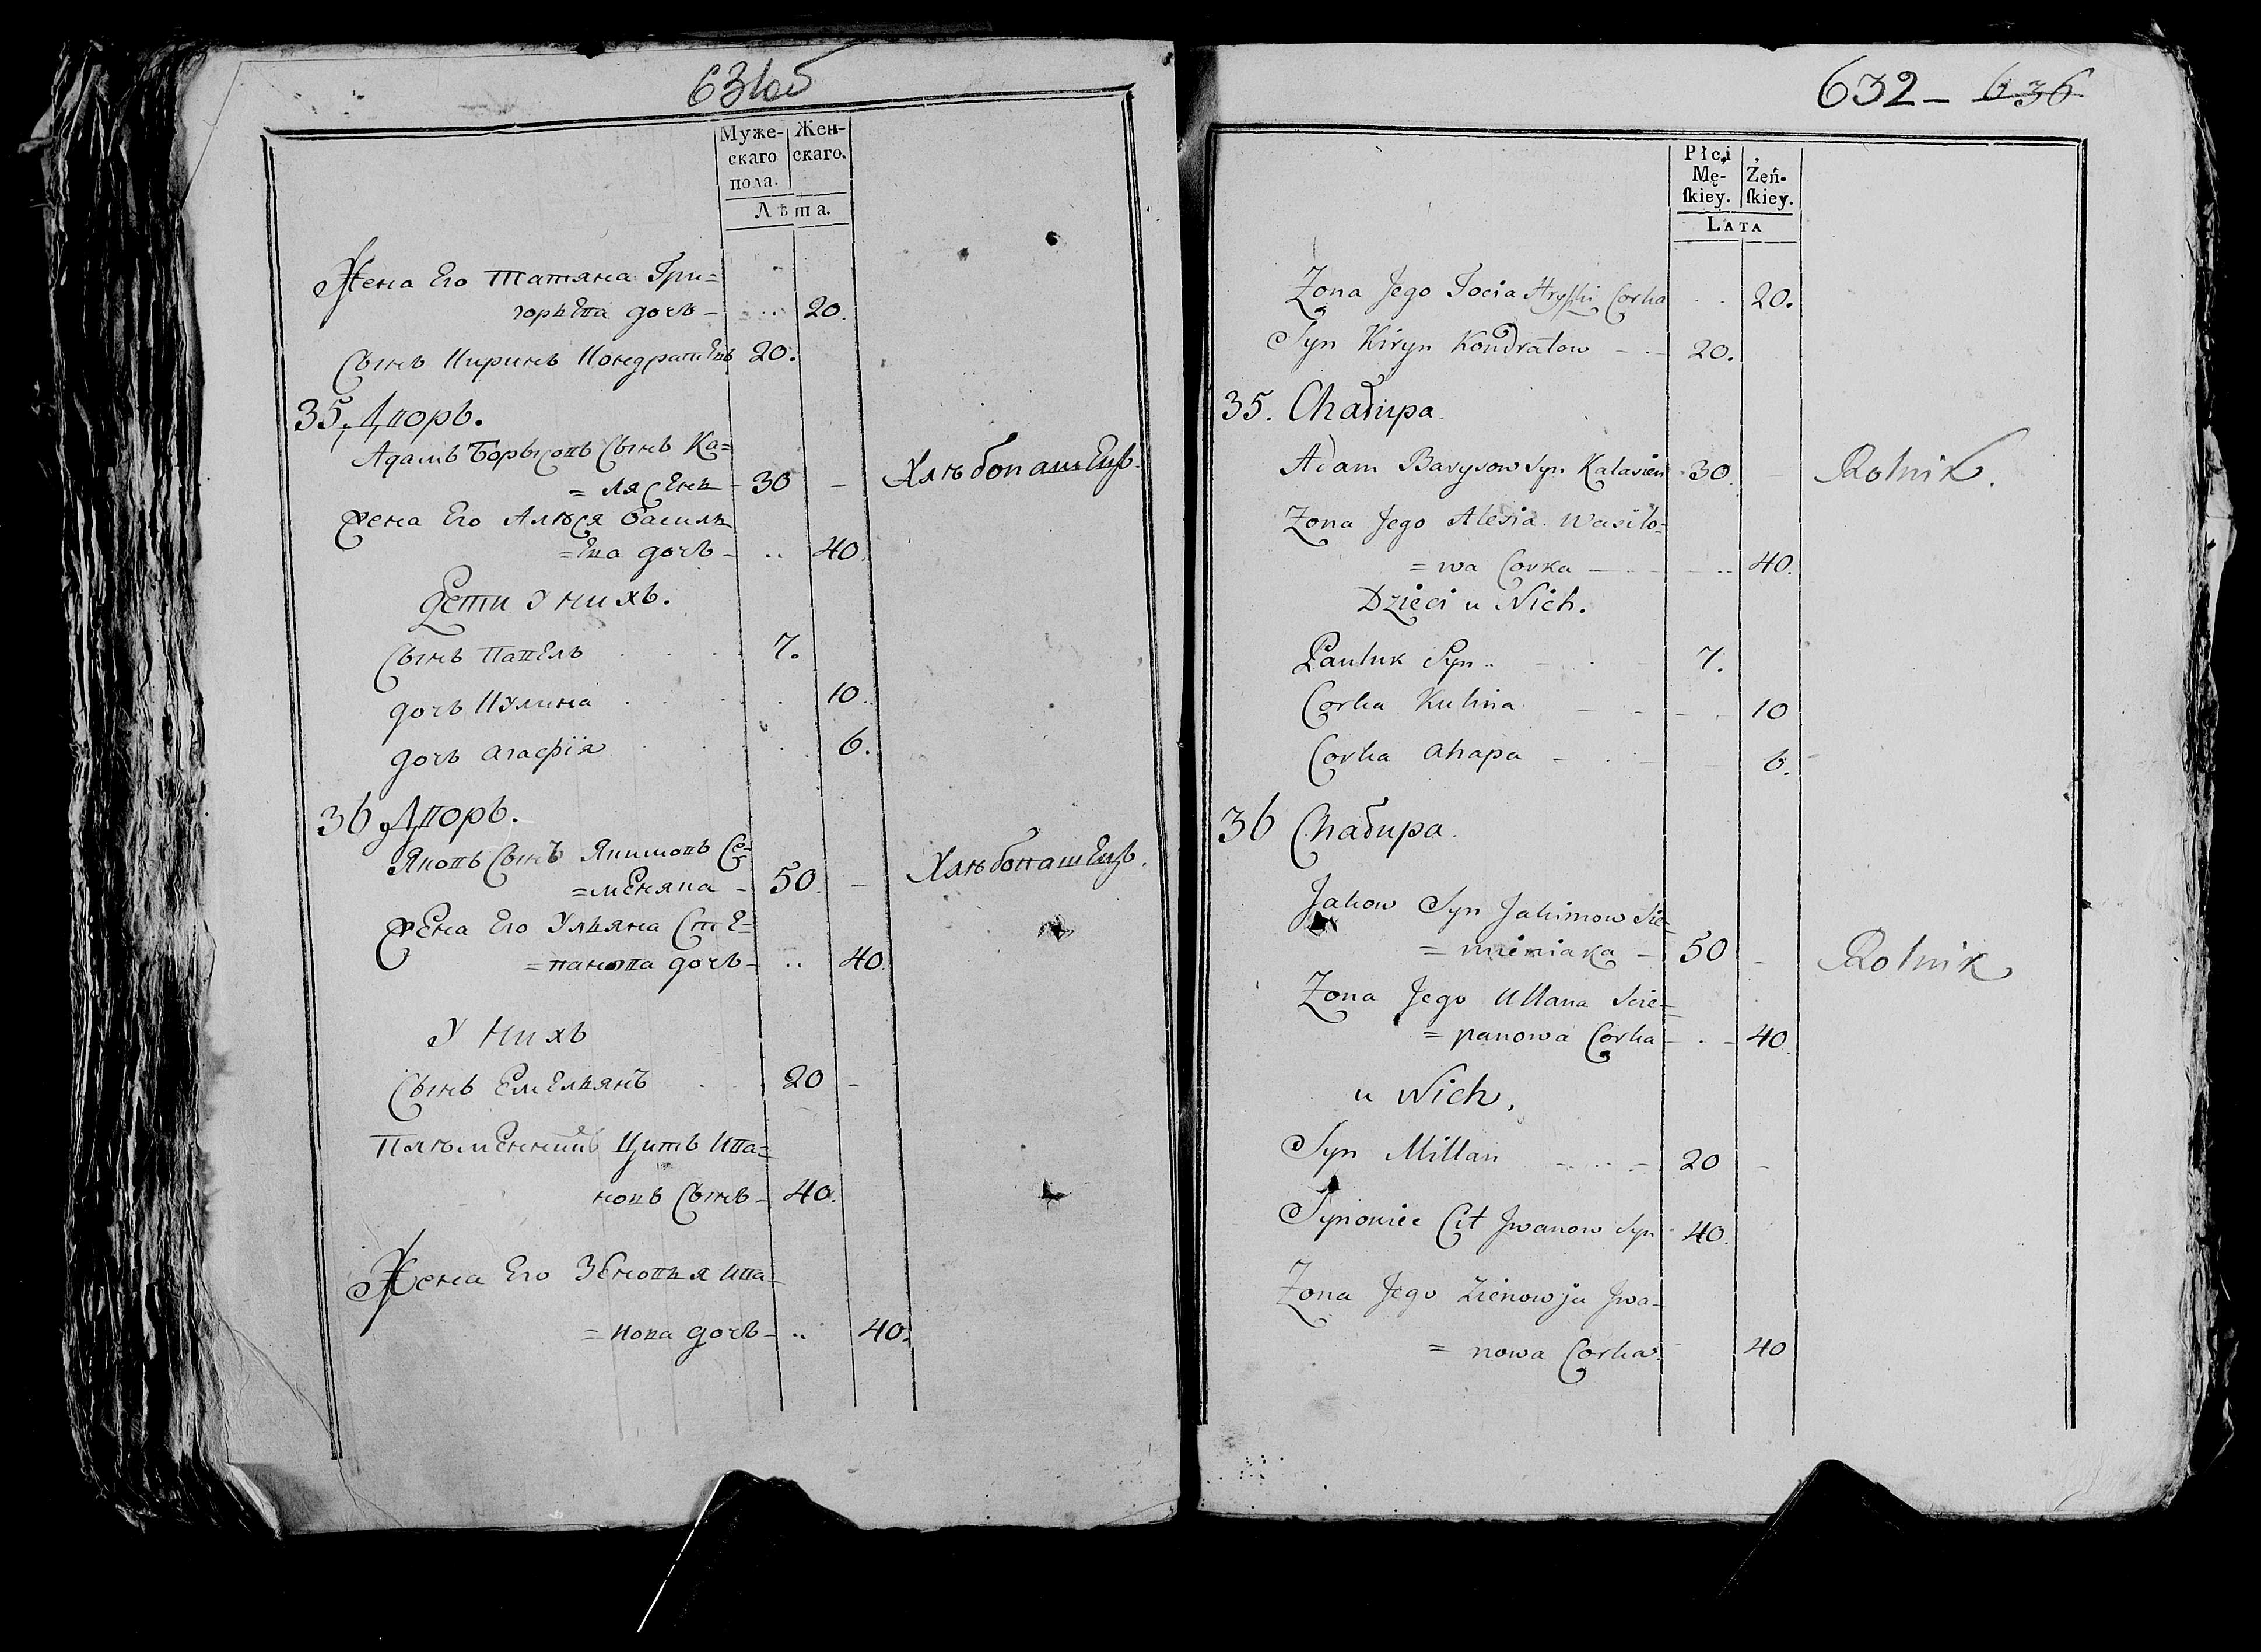 631об
Муже- Жен-
скаго скаго.
пола.
Лѣта.
Жена Его Татяна Гри=
горьева дочь - .. 20.
Сынъ Киринъ Кондратьевъ 20.
35. Дворъ.
Адамъ Борысовъ Сынъ Ка=
= лясень - 30 - Хлѣбопашецъ.
Жена Его Алеся Василь
=ева дочь - .. 40.
Дети У нихъ.
Сынъ Павелъ 7.
дочь Кулина 10.
дочь агафїя 6.
36 Дворъ.
Яковъ Сынъ Якимовъ Се=
=меняка - 50. - Хлѣбопашецъ.
Жена Его Ульяна Сте=
=панова дочь - .. 40.
У нихъ
Сынъ Емельянъ 20 -
Племенникъ Цитъ Ива=
новъ Сынъ - 40.
Жена Его Зеновья Ива=
= нова дочь - .. 40.
632 - 636
Płci
Mę- Żeń-
ſkiey. ſkiey.
LATA
Zona Jego Tocia Hryszki Corka 20.
Syn Kiryn Kondratow - 20.
35. Chałupa.
Adam Barysow Syn Kalasień 30. - Rolnik.
Zona Jego Alesia Wasilo=
= wa Corka - 40.
Dzieci u Nich.
Pauluk Syn .. 7.
Corka Kulina 10
Corka ahapa 6.
36 Chałupa.
Jakow Syn Jakimow Sie=
= mieniaka - 50 - Rolnik
Zona Jego Ullana Scie=
= panowa Corka - 40.
u Nich.
Syn Millan 20 -
Synowiec Cit Jwanow Syn 40.
Zona Jego Zienowja Jwa-
= nowa Corka. 40